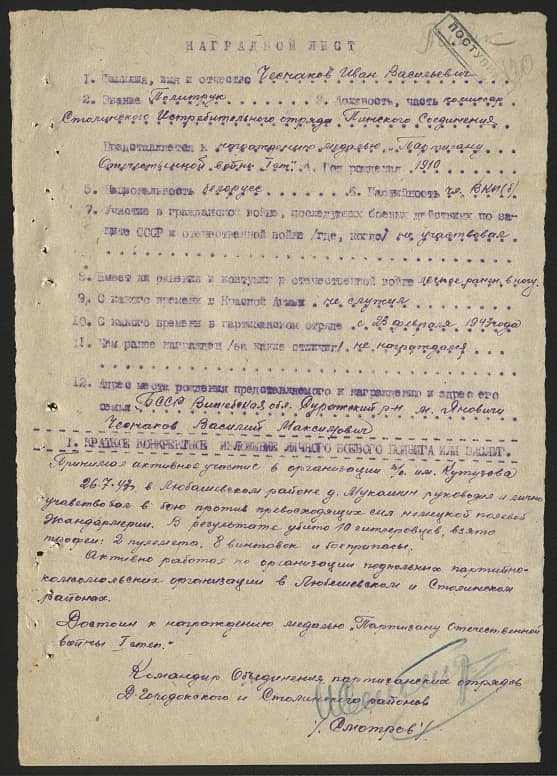 ПОСТУП
НАГРАДНОЙ ЛИСТ
1. Фамилия, имя и отчество Чеснаков Иван Васильевич
2. Звание Политрук 3. Должность, часть комиссар
Сталинского Истребительного отряда Пинского Соединения
Представляется к награждению медалью „Партизану
Отечественной войны I ст." 4. Год рождения 1910
5. Национальность белорус 6. Партийность чл. ВКП(б)
7. Участие в гражданской войне, последующих боевых действиях по за-
щите СССР и отечественной войне /где, когда/ не участвовал
8. Имеет ли ранения и контузии в отечественной войне легко ранен в ногу.
9. С какого времени в Красной Армии не служил
10. С какого времени в партизанском отряде с 23 февраля 1943 года
11. Чем ранее награжден /за какие отличия/ не награждался
12. Адрес места рождения представляемого к награждению и адрес его
семьи БССР Витебская обл. Суражский р-н м. Яновичи
Чеснаков Василий Максимович
I. КРАТКОЕ КОНКРЕТНОЕ ИЗЛОЖЕНИЕ ЛИЧНОГО БОЕВОГО ПОДВИГА ИЛИ ЗАСЛУГ.
Принимал активное участие в организации п/о им. Кутузова
26.7.43г. в Любашевском районе д. Мукошин руководил и лично
учавствовал в бою против превосходящих сил немецкой полевой
жандармерии. В результате убито 10 гитлеровцев, взято
трофеи: 2 пулемета, 8 винтовок и боеприпасы.
Активно работал по организации подпольных партийно-
комсомольских организации в Любешевском и Столинском
районах.
Достоин к награждению медалью „Партизану Отечественной
войны I степ."
Командир Объединения партизанских отрядов
Д-Городокского и Столинского районов
/Смотров/